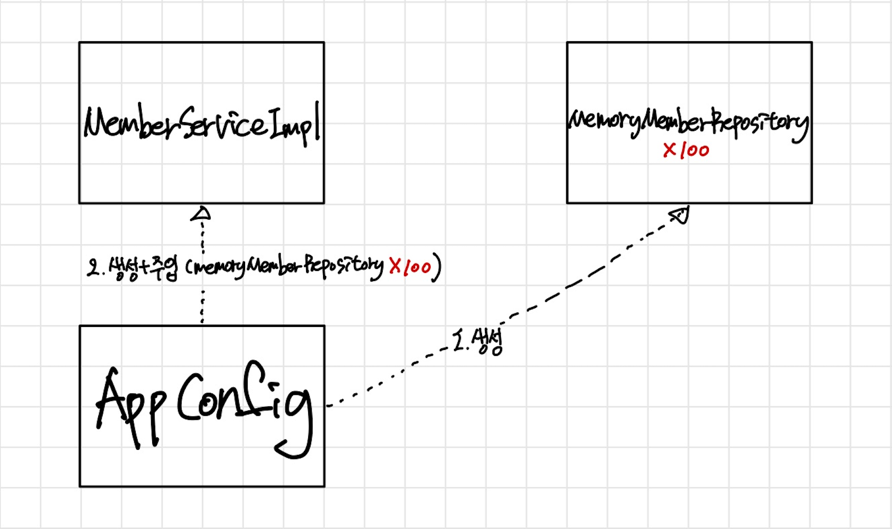 MemberServiceImpl
MemoryMemberRepository
x100
2. 생성+주입 (memoryMemberRepository x100)
1. 생성
AppConfig